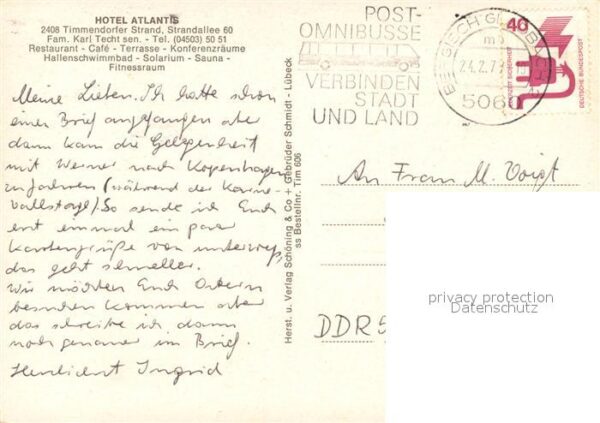 HOTEL ATLANTIS
2408 Timmendorfer Strand, Strandallee 60
Fam. Karl Techt sen. - Tel. (04503) 50 51
Restaurant - Café - Terrasse - Konferenzräume
Hallenschwimmbad - Solarium - Sauna -
Fitnessraum
Meine Lieben. Ich hatte schon
einen Brief angefangen aber
dann kam die Gelegenheit
mit Werner nach Kopenhagen
zu fahren (während der Karne-
valstage). So sende ich Euch
erst einmal ein paar
Kartengrüße von unterwegs,
das geht schneller.
Wir möchten Euch Ostern
besuchen kommen aber
das schreibe ich dann
noch genauer im Brief.
Herzlichst Ingrid
Herst. u. Verlag Schöning & Co + Gebrüder Schmidt - Lübeck
ss Bestellnr. Tim 606
POST-
OMNIBUSSE
VERBINDEN
STADT
UND LAND
BERGISCH GLADBACH
24.2.77
506
40
JEDERZEIT SICHERHEIT
DEUTSCHE BUNDESPOST
An Frau M. Voigt
DDR 5
privacy protection
Datenschutz